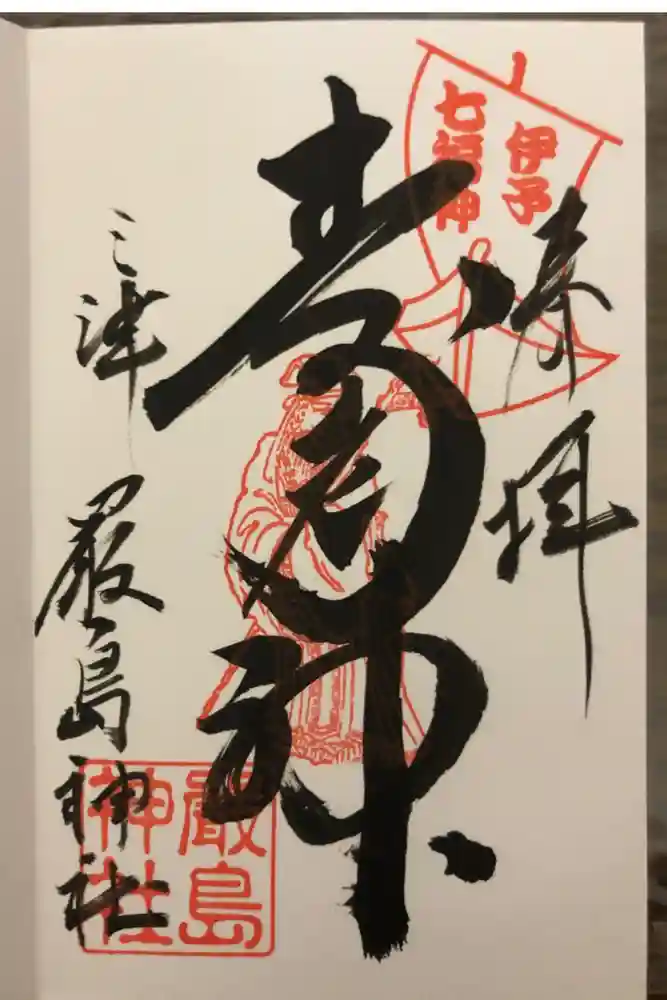 奉拝
伊予
七福神
寿老神
三津
厳島神社
嚴島
神社